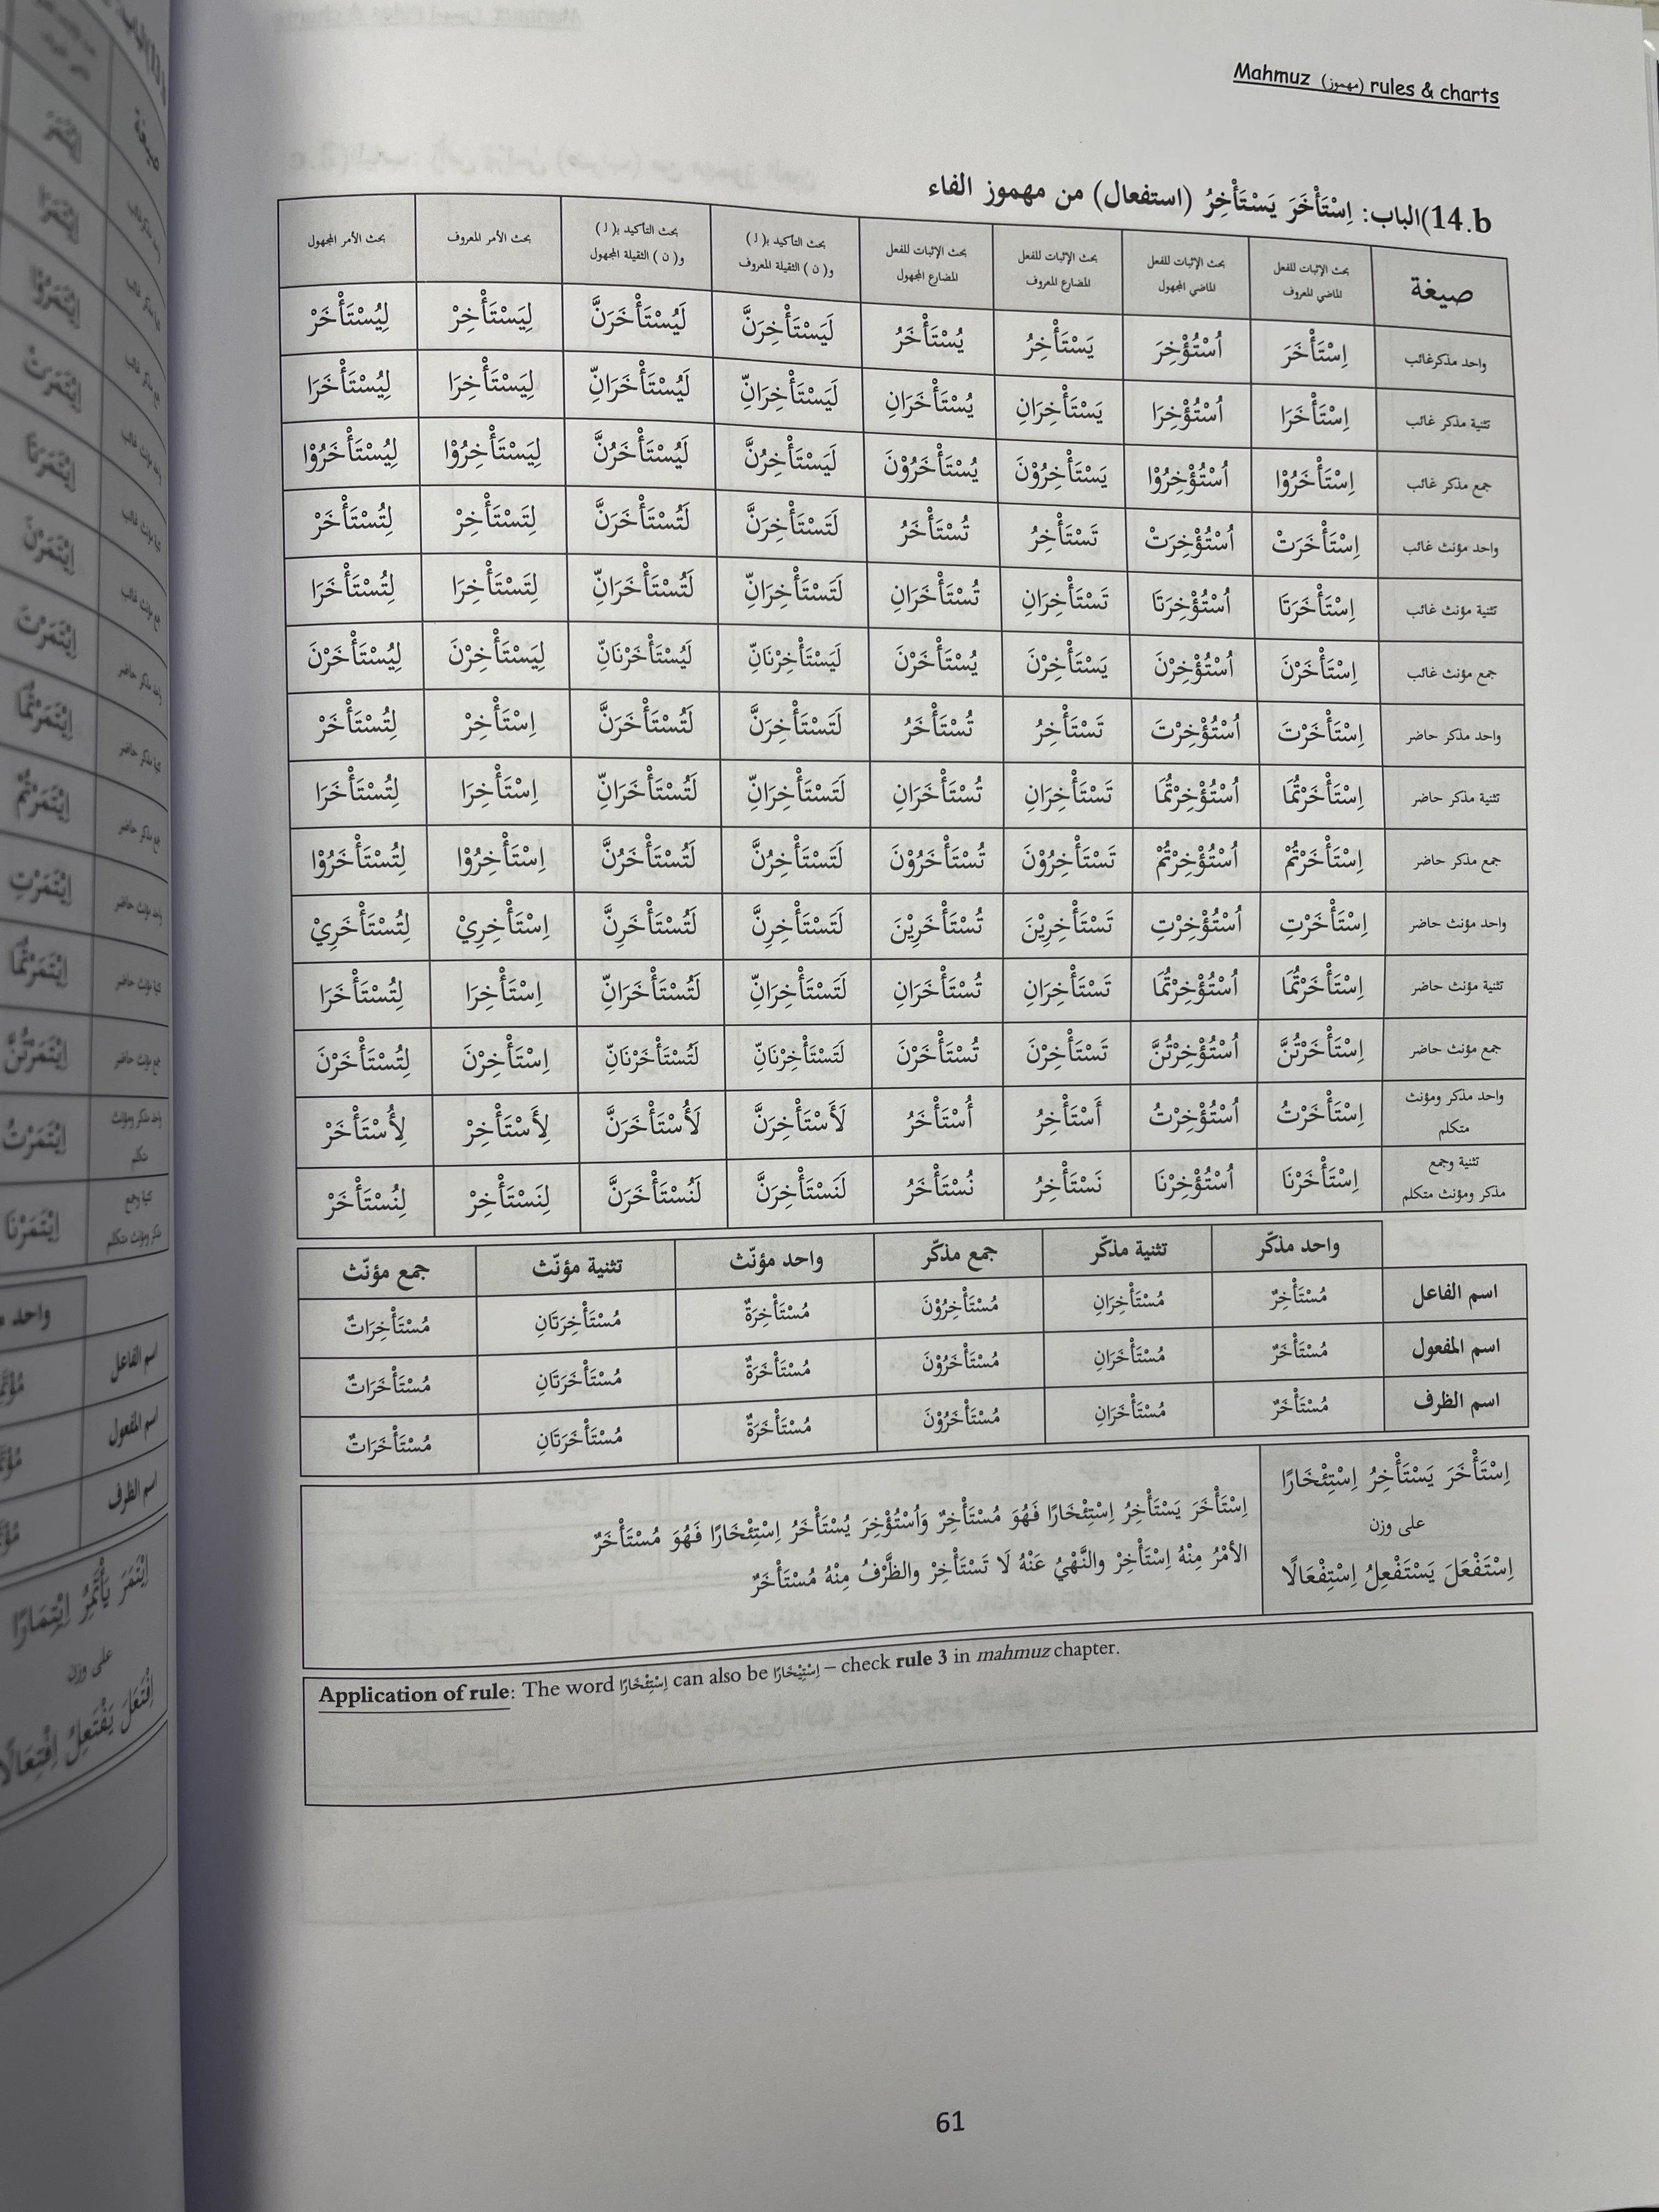 Mahmuz (مهموز) rules & charts
14.b)الباب: اِسْتَأْخَرَ يَسْتَأْخِرُ (استفعال) من مهموز الفاء
صيغة بحث الإثبات للفعل الماضي المعروف بحث الإثبات للفعل الماضي المجهول بحث الإثبات للفعل المضارع المعروف بحث الإثبات للفعل المضارع المجهول بحث التأكيد بـ( لَ ) و( ن ) الثقيلة المعروف بحث التأكيد بـ( لَ ) و( ن ) الثقيلة المجهول بحث الأمر المعروف بحث الأمر المجهول
واحد مذكرغائب اِسْتَأْخَرَ اُسْتُؤْخِرَ يَسْتَأْخِرُ يُسْتَأْخَرُ لَيَسْتَأْخِرَنَّ لَيُسْتَأْخَرَنَّ لِيَسْتَأْخِرْ لِيُسْتَأْخَرْ
تثنية مذكر غائب اِسْتَأْخَرَا اُسْتُؤْخِرَا يَسْتَأْخِرَانِ يُسْتَأْخَرَانِ لَيَسْتَأْخِرَانِّ لَيُسْتَأْخَرَانِّ لِيَسْتَأْخِرَا لِيُسْتَأْخَرَا
جمع مذكر غائب اِسْتَأْخَرُوْا اُسْتُؤْخِرُوْا يَسْتَأْخِرُوْنَ يُسْتَأْخَرُوْنَ لَيَسْتَأْخِرُنَّ لَيُسْتَأْخَرُنَّ لِيَسْتَأْخِرُوْا لِيُسْتَأْخَرُوْا
واحد مؤنث غائب اِسْتَأْخَرَتْ اُسْتُؤْخِرَتْ تَسْتَأْخِرُ تُسْتَأْخَرُ لَتَسْتَأْخِرَنَّ لَتُسْتَأْخَرَنَّ لِتَسْتَأْخِرْ لِتُسْتَأْخَرْ
تثنية مؤنث غائب اِسْتَأْخَرَتَا اُسْتُؤْخِرَتَا تَسْتَأْخِرَانِ تُسْتَأْخَرَانِ لَتَسْتَأْخِرَانِّ لَتُسْتَأْخَرَانِّ لِتَسْتَأْخِرَا لِتُسْتَأْخَرَا
جمع مؤنث غائب اِسْتَأْخَرْنَ اُسْتُؤْخِرْنَ يَسْتَأْخِرْنَ يُسْتَأْخَرْنَ لَيَسْتَأْخِرْنَانِّ لَيُسْتَأْخَرْنَانِّ لِيَسْتَأْخِرْنَ لِيُسْتَأْخَرْنَ
واحد مذكر حاضر اِسْتَأْخَرْتَ اُسْتُؤْخِرْتَ تَسْتَأْخِرُ تُسْتَأْخَرُ لَتَسْتَأْخِرَنَّ لَتُسْتَأْخَرَنَّ اِسْتَأْخِرْ لِتُسْتَأْخَرْ
تثنية مذكر حاضر اِسْتَأْخَرْتُمَا اُسْتُؤْخِرْتُمَا تَسْتَأْخِرَانِ تُسْتَأْخَرَانِ لَتَسْتَأْخِرَانِّ لَتُسْتَأْخَرَانِّ اِسْتَأْخِرَا لِتُسْتَأْخَرَا
جمع مذكر حاضر اِسْتَأْخَرْتُمْ اُسْتُؤْخِرْتُمْ تَسْتَأْخِرُوْنَ تُسْتَأْخَرُوْنَ لَتَسْتَأْخِرُنَّ لَتُسْتَأْخَرُنَّ اِسْتَأْخِرُوْا لِتُسْتَأْخَرُوْا
واحد مؤنث حاضر اِسْتَأْخَرْتِ اُسْتُؤْخِرْتِ تَسْتَأْخِرِيْنَ تُسْتَأْخَرِيْنَ لَتَسْتَأْخِرِنَّ لَتُسْتَأْخَرِنَّ اِسْتَأْخِرِيْ لِتُسْتَأْخَرِيْ
تثنية مؤنث حاضر اِسْتَأْخَرْتُمَا اُسْتُؤْخِرْتُمَا تَسْتَأْخِرَانِ تُسْتَأْخَرَانِ لَتَسْتَأْخِرَانِّ لَتُسْتَأْخَرَانِّ اِسْتَأْخِرَا لِتُسْتَأْخَرَا
جمع مؤنث حاضر اِسْتَأْخَرْتُنَّ اُسْتُؤْخِرْتُنَّ تَسْتَأْخِرْنَ تُسْتَأْخَرْنَ لَتَسْتَأْخِرْنَانِّ لَتُسْتَأْخَرْنَانِّ اِسْتَأْخِرْنَ لِتُسْتَأْخَرْنَ
واحد مذكر ومؤنث متكلم اِسْتَأْخَرْتُ اُسْتُؤْخِرْتُ أَسْتَأْخِرُ أُسْتَأْخَرُ لَأَسْتَأْخِرَنَّ لَأُسْتَأْخَرَنَّ لِأَسْتَأْخِرْ لِأُسْتَأْخَرْ
تثنية وجمع مذكر ومؤنث متكلم اِسْتَأْخَرْنَا اُسْتُؤْخِرْنَا نَسْتَأْخِرُ نُسْتَأْخَرُ لَنَسْتَأْخِرَنَّ لَنُسْتَأْخَرَنَّ لِنَسْتَأْخِرْ لِنُسْتَأْخَرْ
واحد مذكّر تثنية مذكّر جمع مذكّر واحد مؤنّث تثنية مؤنّث جمع مؤنّث
اسم الفاعل مُسْتَأْخِرٌ مُسْتَأْخِرَانِ مُسْتَأْخِرُوْنَ مُسْتَأْخِرَةٌ مُسْتَأْخِرَتَانِ مُسْتَأْخِرَاتٌ
اسم المفعول مُسْتَأْخَرٌ مُسْتَأْخَرَانِ مُسْتَأْخَرُوْنَ مُسْتَأْخَرَةٌ مُسْتَأْخَرَتَانِ مُسْتَأْخَرَاتٌ
اسم الظرف مُسْتَأْخَرٌ مُسْتَأْخَرَانِ مُسْتَأْخَرُوْنَ مُسْتَأْخَرَةٌ مُسْتَأْخَرَتَانِ مُسْتَأْخَرَاتٌ
اِسْتَأْخَرَ يَسْتَأْخِرُ اِسْتِئْخَارًا
على وزن
اِسْتَفْعَلَ يَسْتَفْعِلُ اِسْتِفْعَالًا
اِسْتَأْخَرَ يَسْتَأْخِرُ اِسْتِئْخَارًا فَهُوَ مُسْتَأْخِرٌ وَاُسْتُؤْخِرَ يُسْتَأْخَرُ اِسْتِئْخَارًا فَهُوَ مُسْتَأْخَرٌ
الأَمْرُ مِنْهُ اِسْتَأْخِرْ والنَّهْيُ عَنْهُ لَا تَسْتَأْخِرْ والظَّرْفُ مِنْهُ مُسْتَأْخَرٌ
Application of rule: The word اِسْتِئْخَارًا can also be اِسْتِيْخَارًا – check rule 3 in mahmuz chapter.
61